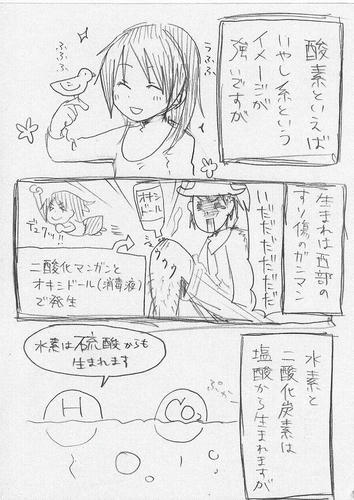 酸素といえば
いやし系という
イメージが
強いですが
うふふ
ふふふ
生まれは西部の
すり傷のガンマン
いだだだだだだだ
オキシ
ドール
デュクッ!!
二酸化マンガンと
オキシドール(消毒液)
で発生
水素と
二酸化炭素は
塩酸から生まれますが
水素は硫酸からも
生まれます
H
CO₂